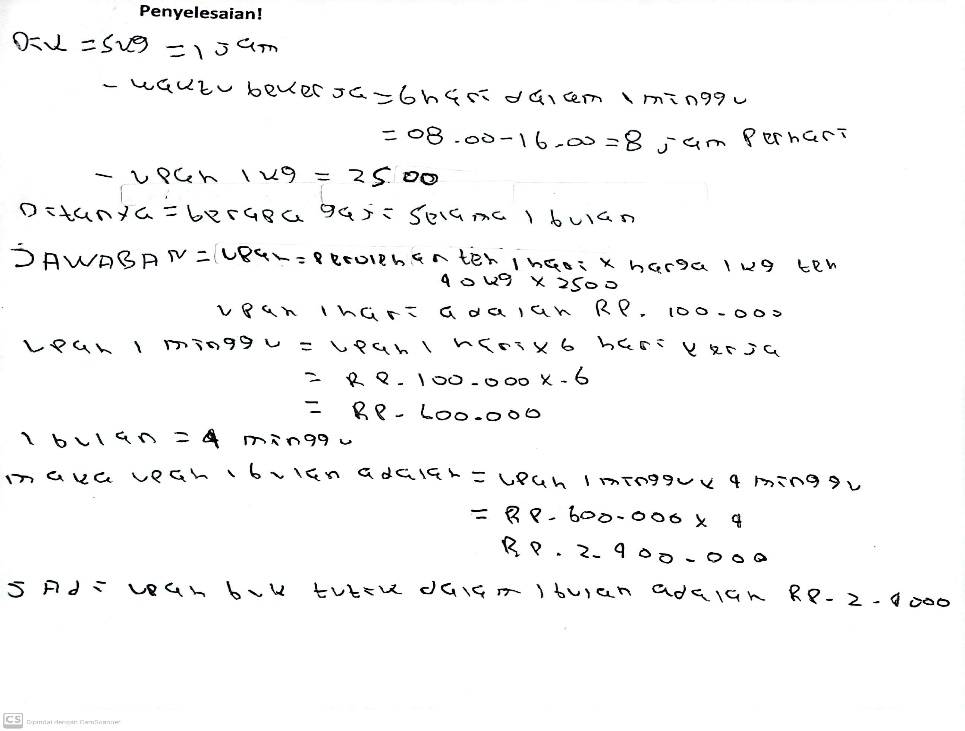 Penyelesaian!
Dik = 5kg = 1 jam
- waktu bekerja = 6 hari dalam 1 minggu
= 08.00-16.00 = 8 jam Perhari
- upah 1 kg = 2500
Ditanya = berapa gaji selama 1 bulan
JAWABAN = upah = perolehan teh 1 hari x harga 1 kg teh
40 kg x 2500
upah 1 hari adalah RP. 100.000
upah 1 minggu = upah 1 hari x 6 hari kerja
= RP. 100.000 x. 6
= RP. 600.000
1 bulan = 4 minggu
maka upah 1 bulan adalah = upah 1 minggu x 4 minggu
= RP. 600.000 x 4
RP. 2.400.000
JAdi upah buk tutik dalam 1 bulan adalah RP. 2.4000
CS Dipindai dengan CamScanner